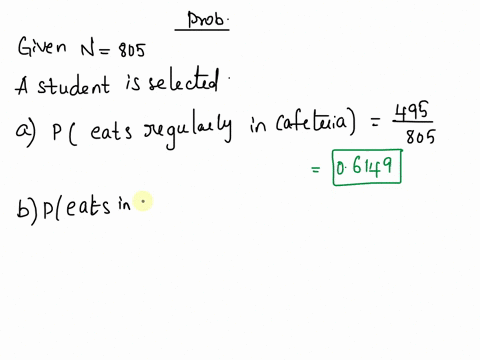 Prob.
Given N = 805
A student is selected.
a) P( eats regularly in cafeteria) = 495/805
= 0.6149
b) P(eats in